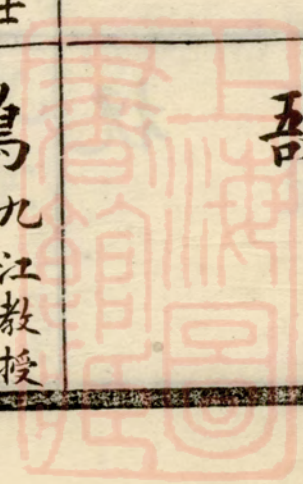 吾
九江教授
上海圖
書館藏